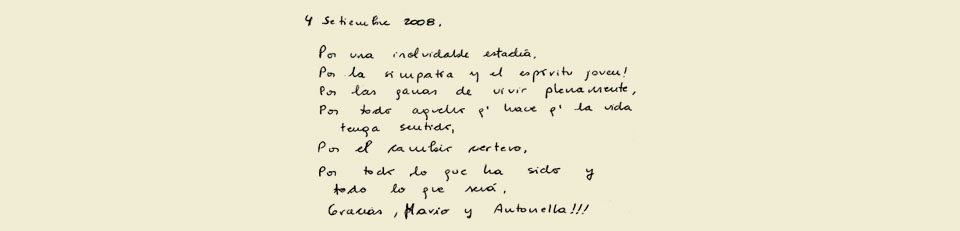 4 Setiembre 2008.
Por una inolvidable estadía,
Por la simpatía y el espíritu joven!
Por las ganas de vivir plenamente,
Por todo aquello q' hace q' la vida
tenga sentido,
Por el cambio certero,
Por todo lo que ha sido y
todo lo que será,
Gracias, Mario y Antonella!!!